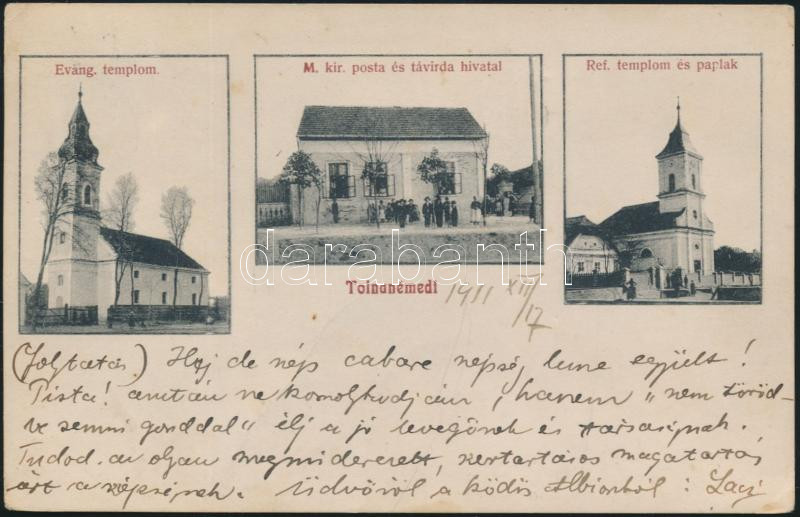 Evang. templom.
M. kir. posta és távirda hivatal
Ref. templom és paplak
darabanth
Tolnanémedi
1911 XII/17
(Folytatás) Haj de nép cabare népség lenne együtt!
Pista! ne komolykodjám, hanem "nem törőd-
ve semmi gonddal" élj a jó levegőnek és társaságnak.
Tudod. az olyan kertartásos magatartás
árt a népségnek. Üdvözöl a ködös Albionból: Laci